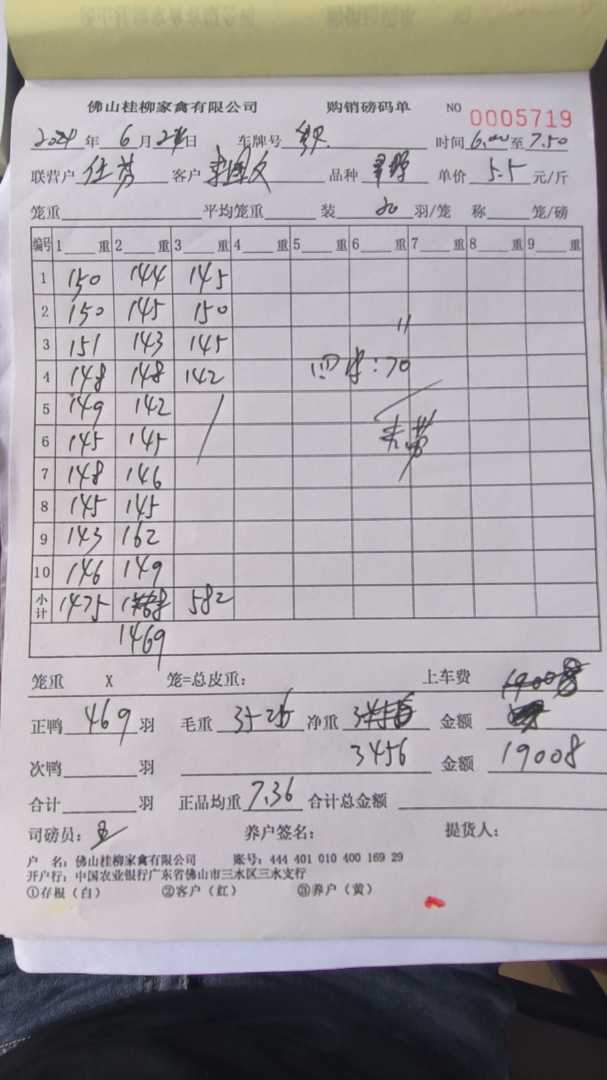 佛山桂柳家禽有限公司 购销磅码单 NO 0005719
2024年 6月 日 车牌号 时间 6.00至7.50
联营户 客户 品种 单价 5.5 元/斤
笼重 平均笼重 装 20 羽/笼 称 笼/磅
编号 1 重 2 重 3 重 4 重 5 重 6 重 7 重 8 重 9 重
1 150 144 145
2 150 145 150
3 151 143 145
4 148 148 142 :70
5 149 142
6 145 145
7 148 146
8 145 145
9 143 162
10 146 149
小计 1475 582
1469
笼重 X 笼=总皮重: 上车费
正鸭 469 羽 毛重 3526 净重 金额
3456 19008
次鸭 羽 金额
合计 羽 正品均重 7.36 合计总金额
司磅员: 养户签名: 提货人:
户 名:佛山桂柳家禽有限公司 账号:444 401 010 400 169 29
开户行:中国农业银行广东省佛山市三水区三水支行
①存根(白) ②客户(红) ③养户(黄)